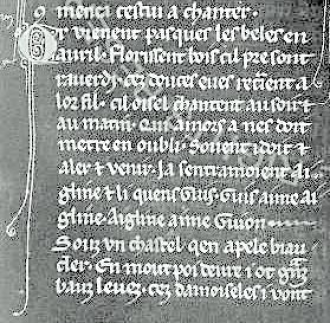 menci cestui a chanter.
Or vienent pasques les beles en
auril. Florissent bois cil pre sont
rauerdi. cez douces eues retraient a
lor fil. cil oisel chantent au soir &
au matin. Qui amors a nes doit
metre en oubli. Souent i doit &
aler & uenir. Ja sentramoient Ai-
gline & li quens Guis. Guis aime Ai
gline. Aigline aime Guion
Soiz vn chastel qen apele biau
cler. En mout poi deure i ot granz
bauz leuez. cez damoiseles i vont